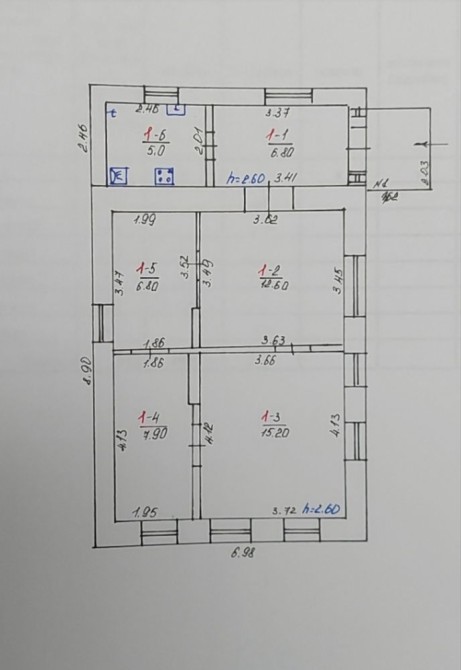 2.46
3.37
2.46
1-6
5.0
2.01
1-1
6.80
h=2.60 3.41
2.03
N1
1.99
3.62
3.47
1-5
6.80
3.52
3.49
1-2
12.60
3.45
1.86
3.63
1.86
3.66
8.90
4.13
1-4
7.90
4.12
1-3
15.20
4.13
1.95
3.72 h=2.60
6.98